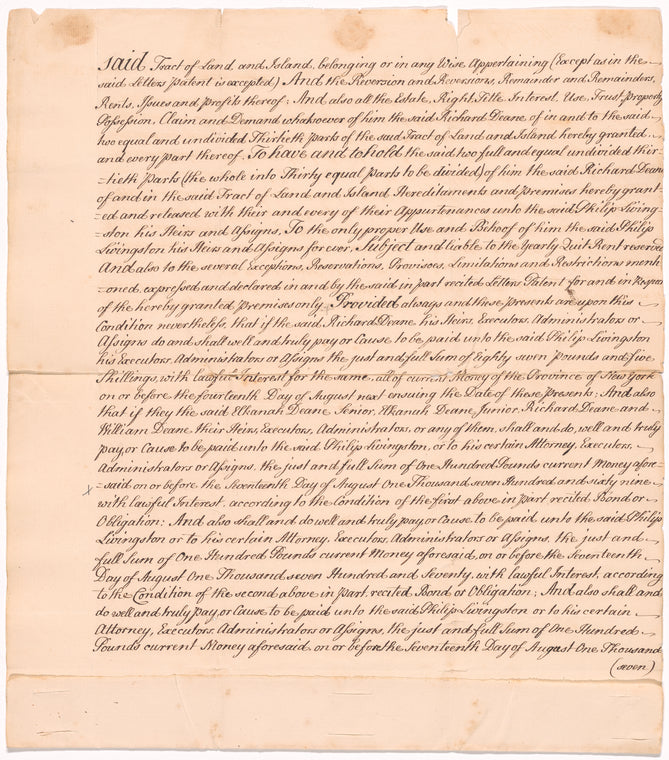 said Tract of Land and Island, belonging or in any Wise Appertaining (Except as in the
said Letters patent is excepted) And the Reversion and Reversions, Remainder and Remainders,
Rents, Issues and profits thereof; And also all the Estate, Right, Title Interest, Use, Trust property
Possession, Claim and Demand whatsoever of him the said Richard Deane of in and to the said
two equal and undivided Thirtieth parts of the said Tract of Land and Island hereby granted
and every part thereof. To have and to hold the said two full and equal undivided thir-
-tieth parts (the whole into Thirty equal parts to be divided) of him the said Richard Deane
of and in the said Tract of Land and Island Hereditaments and premises hereby grant-
-ed and released with their and every of their Appurtenances unto the said Philip Living-
-ston his Heirs and Assigns, To the only proper Use and Behoof of him the said Philip
Livingston his Heirs and Assigns for ever. Subject and liable to the Yearly Quit Rent reserved
And also to the several Exceptions, Reservations, Provisoes, Limitations and Restrictions menti-
-oned, expressed and declared in and by the said in part recited Letters Patent for and in Respect
of the hereby granted Premises only. Provided always and these presents are upon this
Condition nevertheless, that if the said Richard Deane his Heirs, Executors, Administrators or
Assigns do and shall well and truly pay or Cause to be paid unto the said Philip Livingston
his Executors, Administrators or Assigns the just and full Sum of Eighty seven pounds and five
Shillings, with lawful Interest for the same, all of current Money of the Province of New York
on or before the fourteenth Day of August next ensuing the Date of these presents; And also
that if they the said Elkanah Deane, Senior, Elkanah Deane Junior, Richard Deane and
William Deane, their Heirs, Executors, Administrators, or any of them, shall and do, well and truly
pay, or Cause to be paid unto the said Philip Livingston, or to his certain Attorney, Executors,
Administrators or Assigns, the just and full Sum of One Hundred Pounds current Money afore-
-said on or before the Seventeenth Day of August One Thousand seven Hundred and sixty nine
with lawful Interest, according to the Condition of the first above in part recited Bond or
Obligation; And also shall and do well and truly pay or Cause to be paid unto the said Philip
Livingston or to his certain Attorney, Executors, Administrators or Assigns, the just and
full Sum of One Hundred Pounds current Money aforesaid, on or before the Seventeenth
Day of August One Thousand seven Hundred and Seventy, with lawful Interest, according
to the Condition of the second above in part, recited Bond or Obligation; And also shall and
do well and truly pay, or Cause to be paid unto the said Philip Livingston or to his certain
Attorney, Executors, Administrators or Assigns, the just and full Sum of One Hundred
Pounds current Money aforesaid, on or before the Seventeenth Day of August One Thousand
(seven)